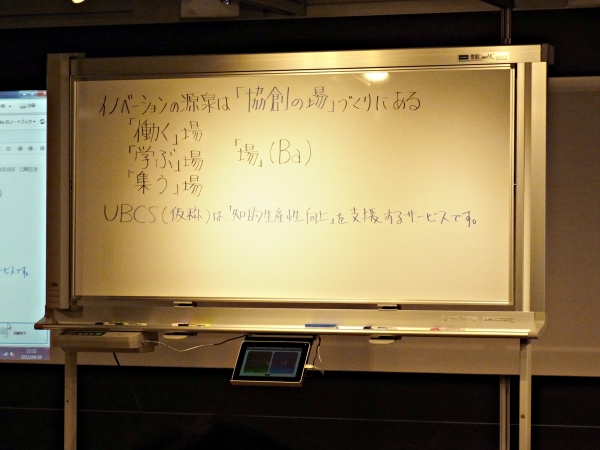 イノベーションの源泉は「協創の場」づくりにある
「働く」場
「学ぶ」場 「場」(Ba)
「集う」場
UBCS(仮称)は「知的生産性向上」を支援するサービスです。